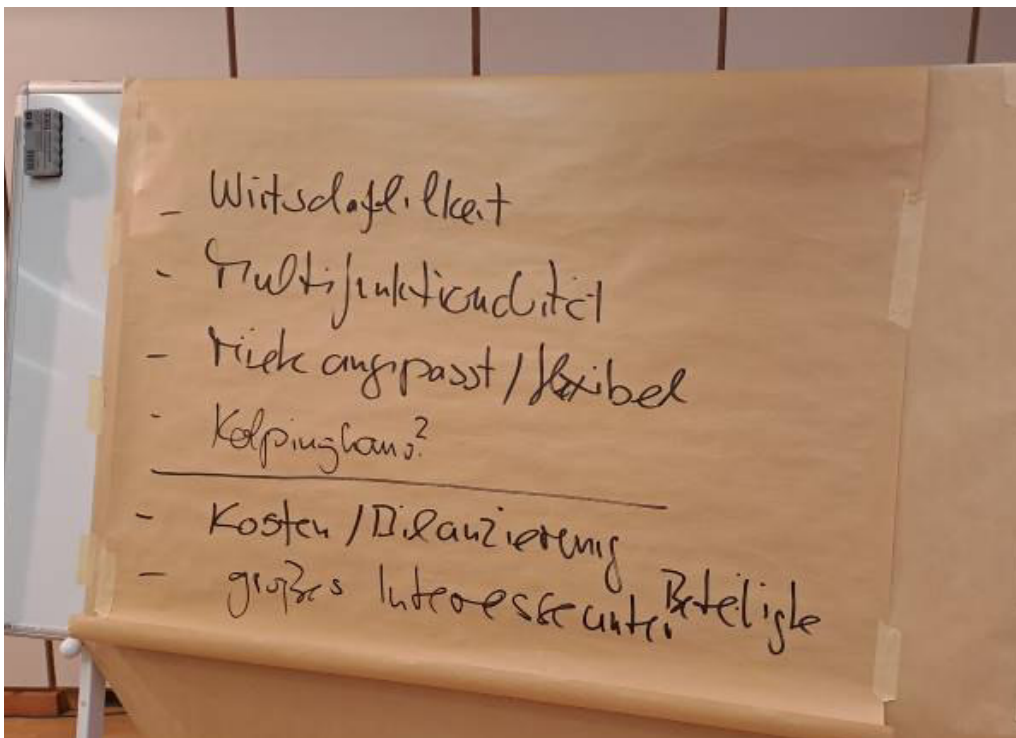 - Wirtschaftlichkeit
- Multifunktionalität
- Miete angepasst / flexibel
- Kolpinghaus?
- Kosten / Bilanzierung
- großes Interesse unter Beteiligte